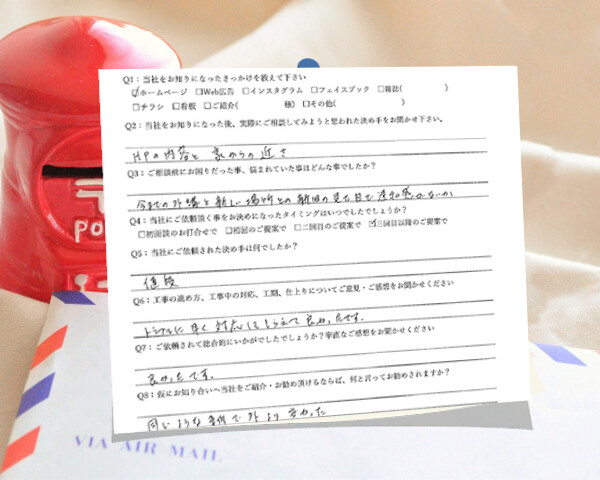 Q1：当社をお知りになったきっかけを教えて下さい
☑ホームページ □Web広告 □インスタグラム □フェイスブック □雑誌( )
□チラシ □看板 □ご紹介( 様) □その他( )
Q2：当社をお知りになった後、実際にご相談してみようと思われた決め手をお聞かせ下さい。
HPの内容と 家からの近さ
Q3：ご相談前にお困りだった事、悩まれていた事はどんな事でしたか？
今までの外構と新しい場所との新旧の見た目で違和感がないか
Q4：当社にご依頼頂く事をお決めになったタイミングはいつでしたでしょうか？
□初面談のお打合せで □初回のご提案で □二回目のご提案で ☑三回目以降のご提案で
Q5：当社にご依頼された決め手は何でしたか？
値段
Q6：工事の進め方、工事中の対応、工期、仕上りについてご意見・ご感想をお聞かせください
トラブルに早く対応してもらえて良かったです。
Q7：ご依頼されて総合的にいかがでしたでしょうか？率直なご感想をお聞かせください
良かったです。
Q8：仮にお知り合いへ当社をご紹介・お勧め頂けるならば、何と言ってお勧めされますか？
同じような条件で外より安かった
〒
PO
VIA AIR MAIL